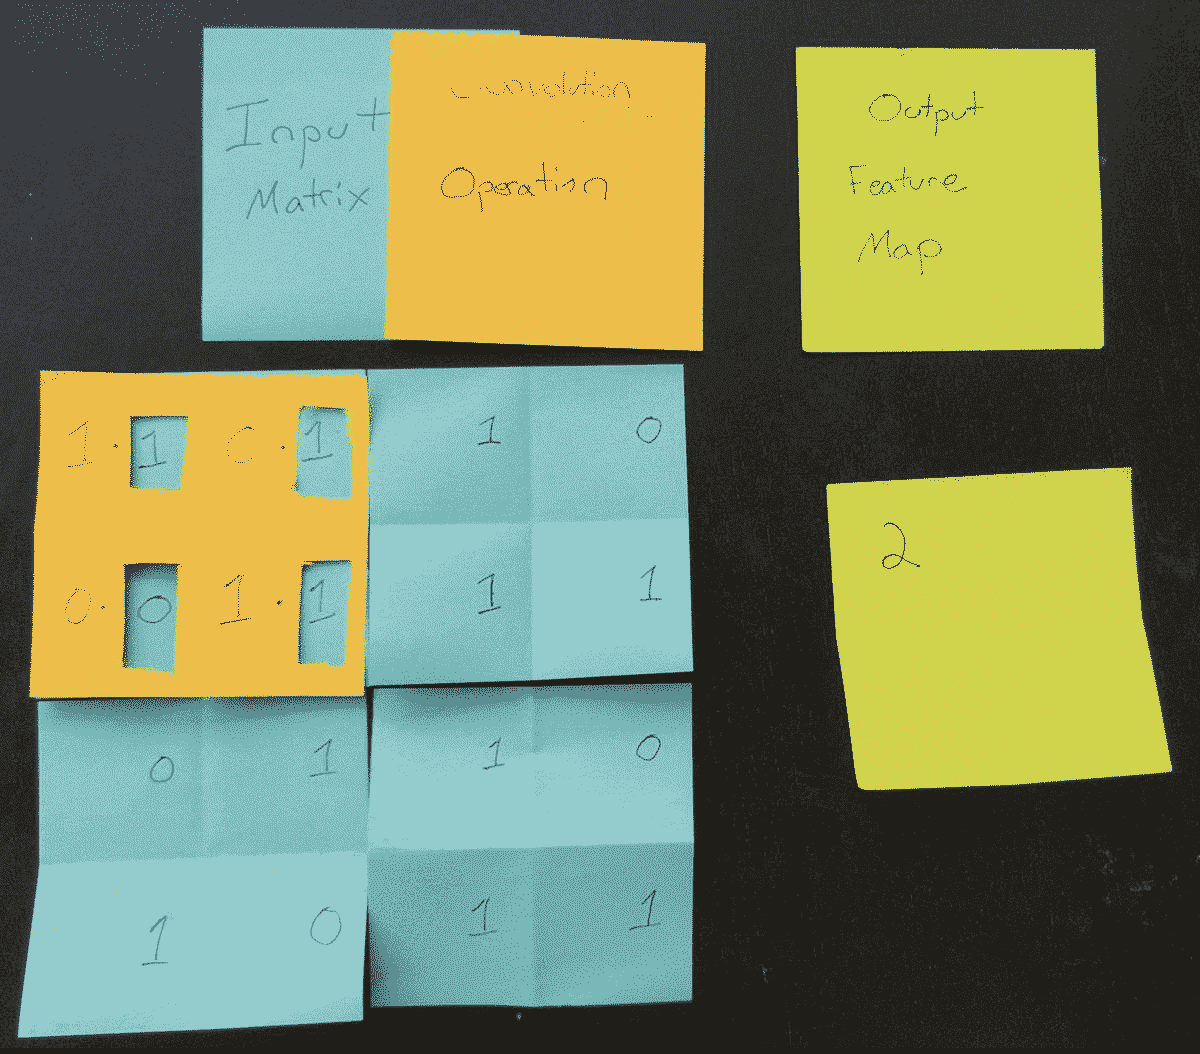 Input
Matrix
Convolution
Operation
Output
Feature
Map
1 · 1 0 · 1 1 0
0 · 0 1 · 1 1 1
2
0 1 1 0
1 0 1 1